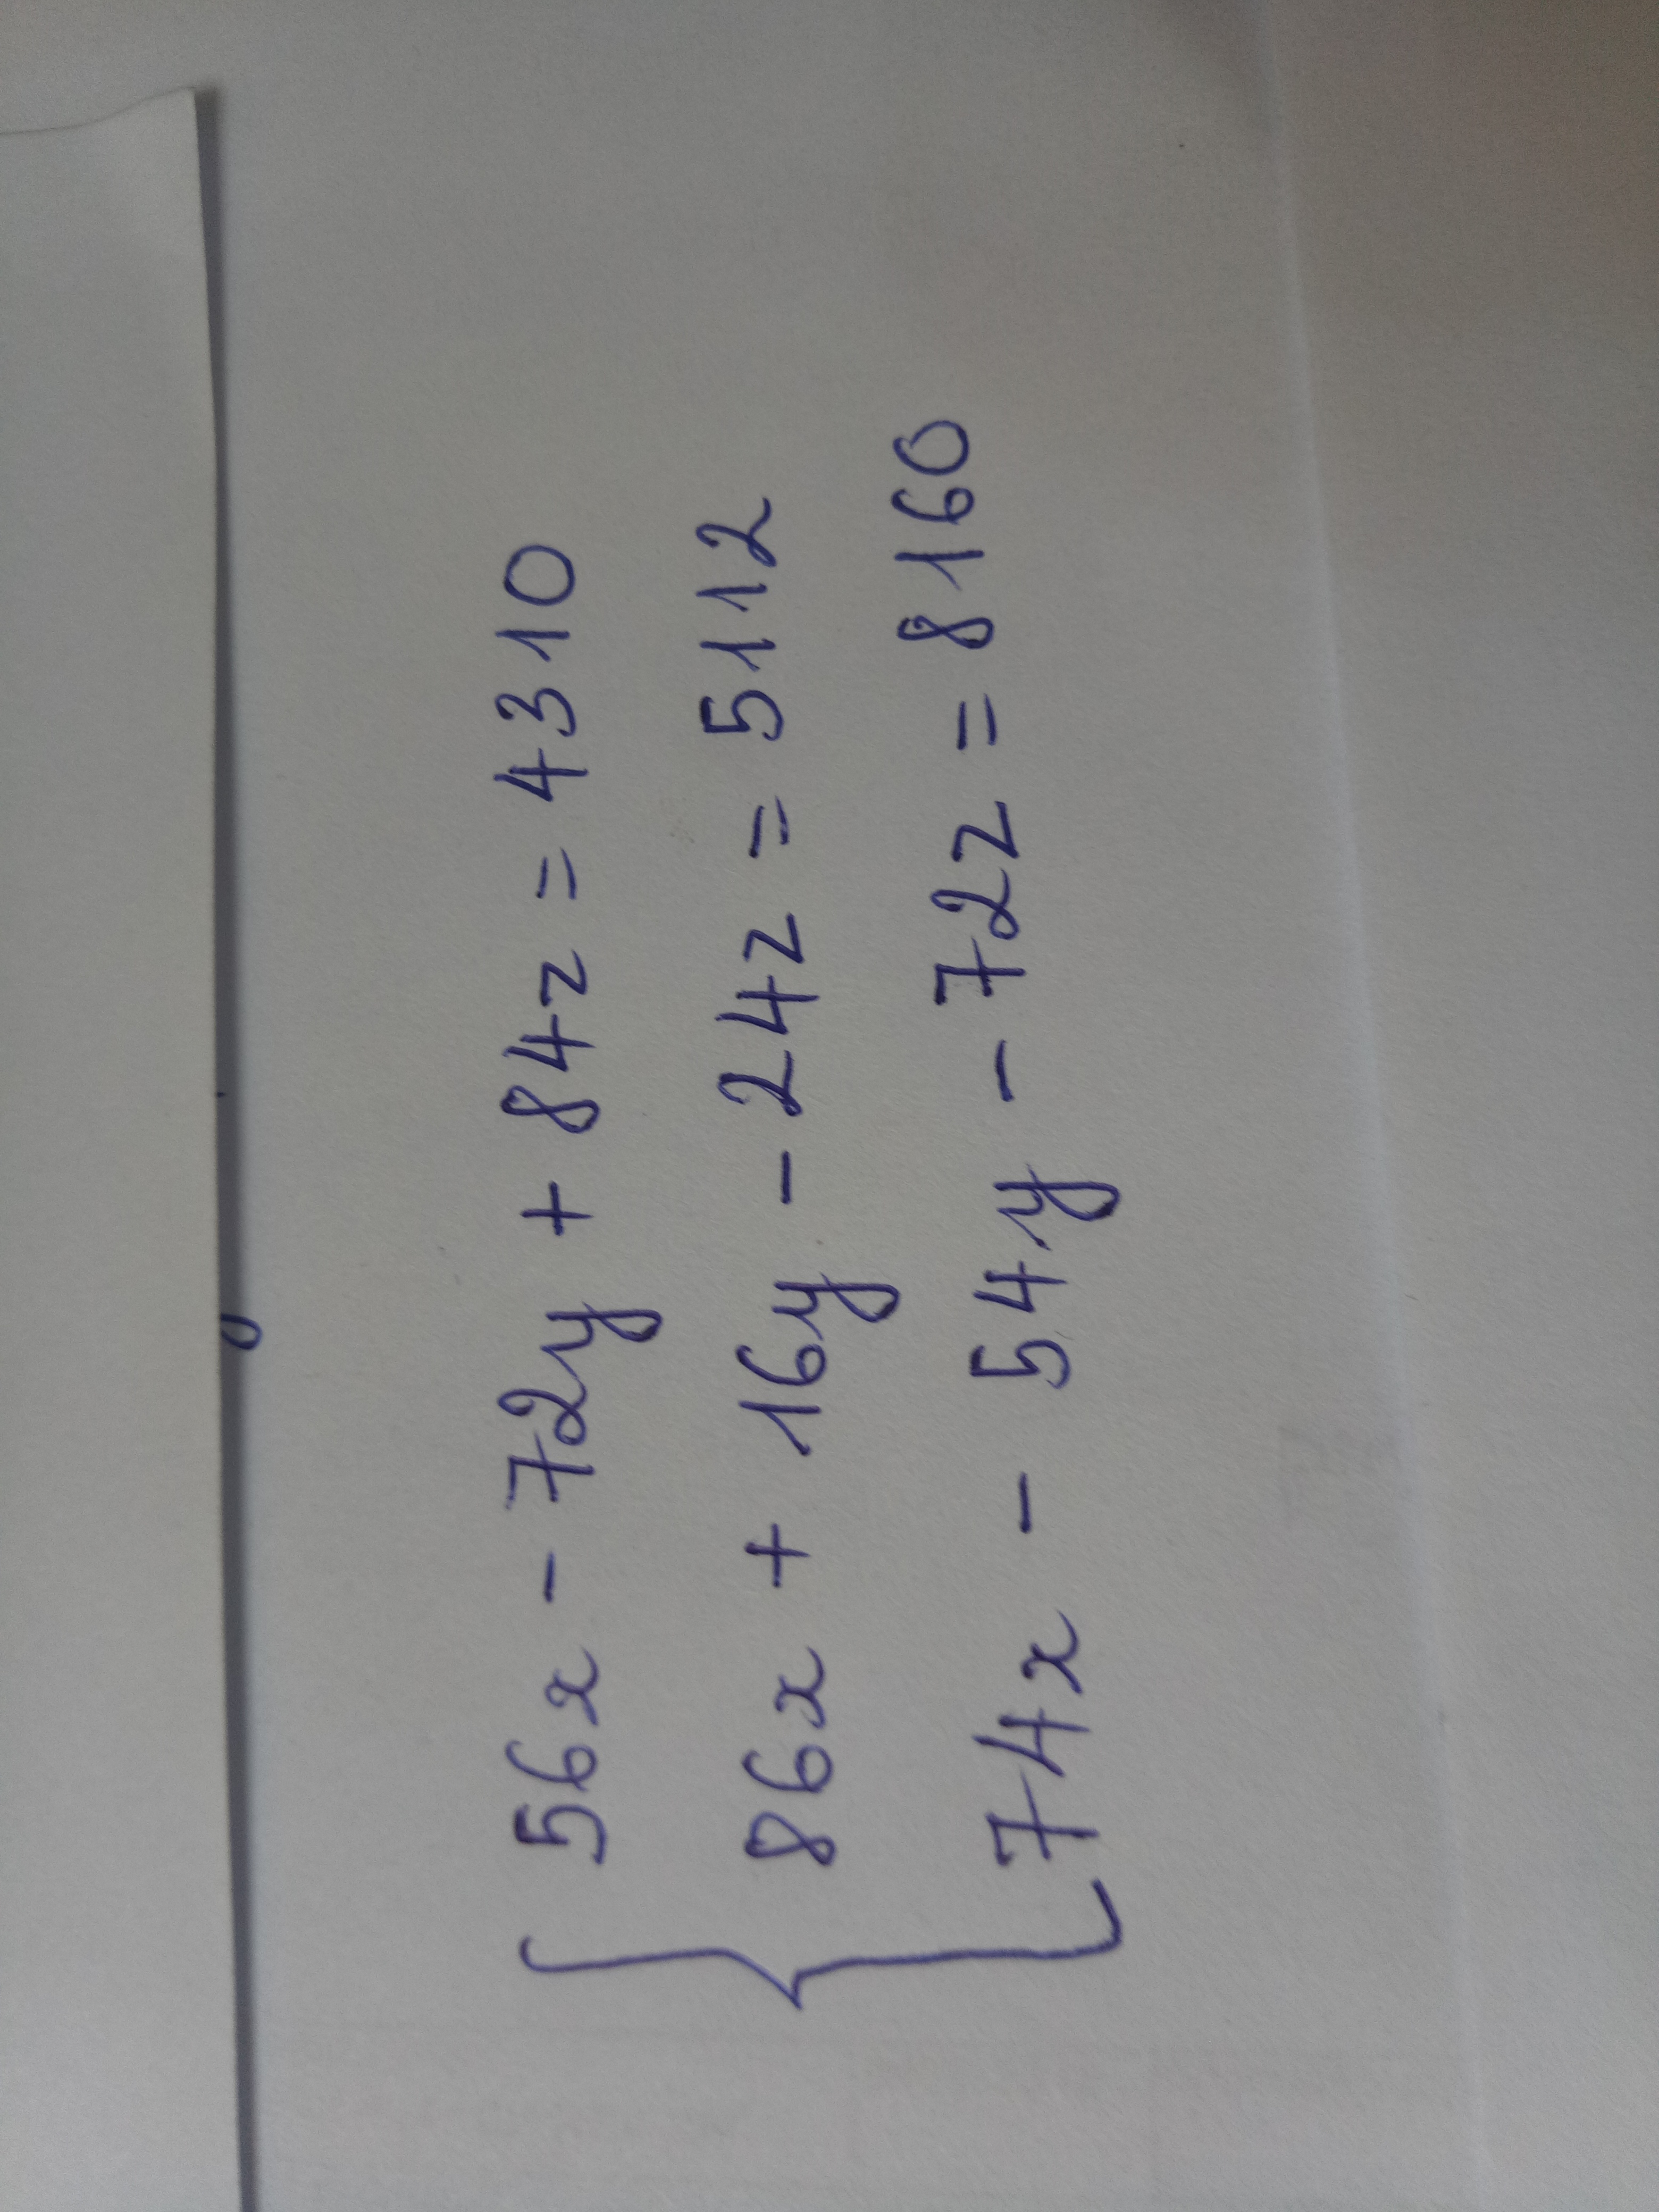 56x - 72y + 84z = 4310
86x + 16y - 24z = 5112
74x - 54y - 72z = 8160